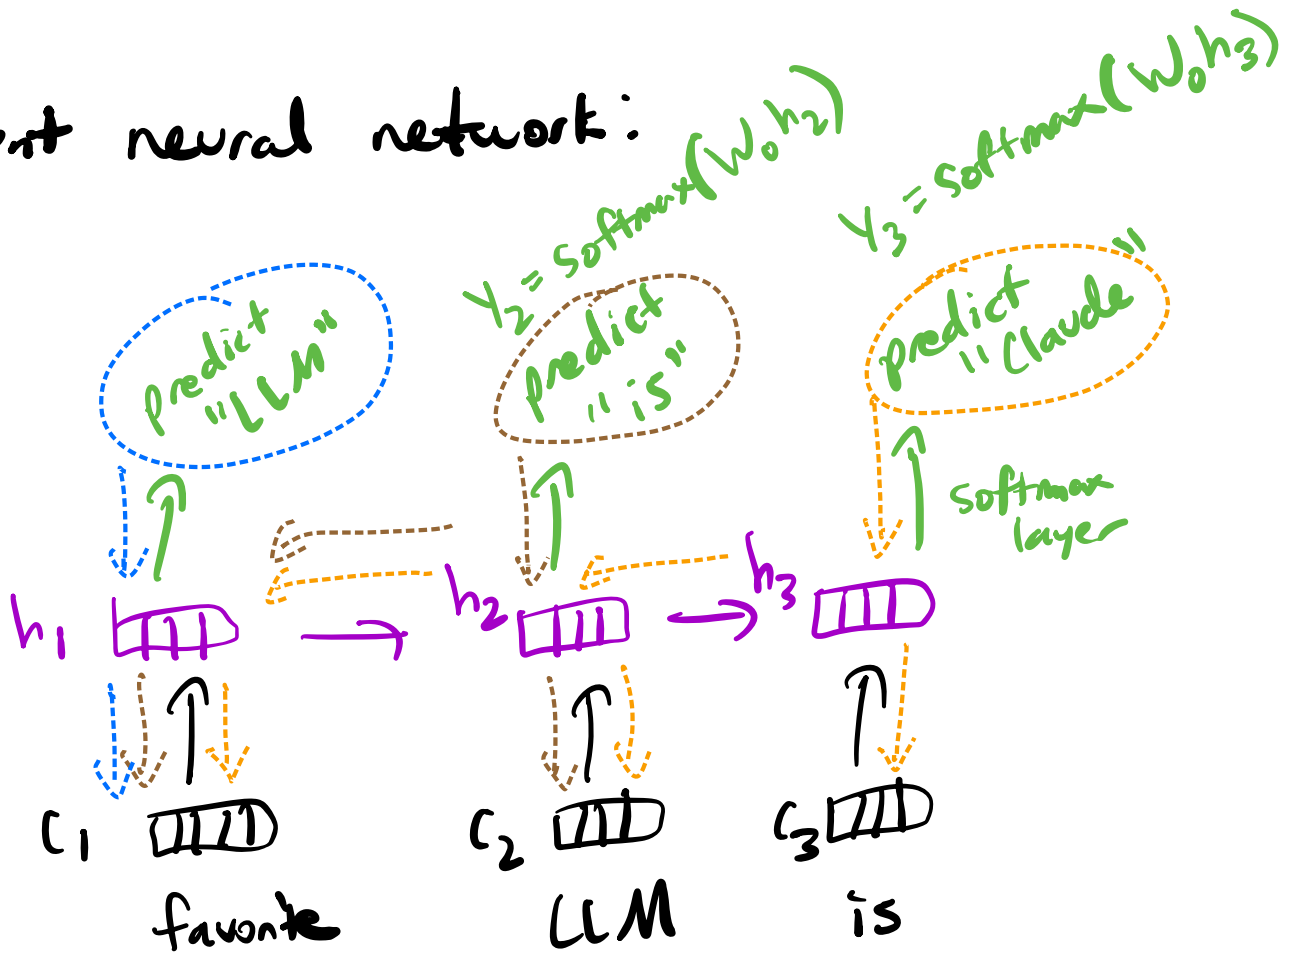 neural network:
Y2 = softmax(W0h2)
Y3 = softmax(W0h3)
predict
"LLM"
predict
"is"
predict
"Claude"
softmax
layer
h1
h2
h3
c1
c2
c3
favorite
LLM
is